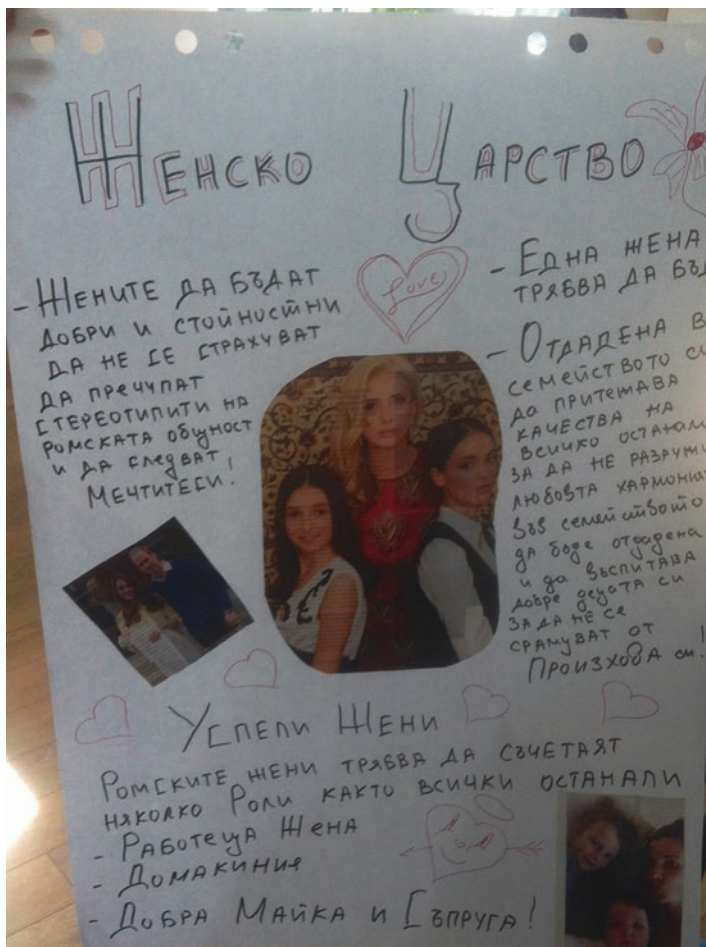 Женско Царство
Love
- Жените да бъдат
добри и стойностни
да не се страхуват
да пречупат
стереотипити на
ромската общност
и да следват
Мечтитеси!
- Една жена
трябва да бъд
- Отдадена в
семейството си
да притежава
качества на
всичко останал
за да не разруши
любовта хармоният
във семейството
да бъде отдадена
и да възпитава
добре децата си
за да не се
срамуват от
Произхода си!
Успели Жени
Ромските жени трябва да съчетаят
няколко Роли както всички останали
- Работеща Жена
- Домакиния
- Добра Майка и Съпруга!